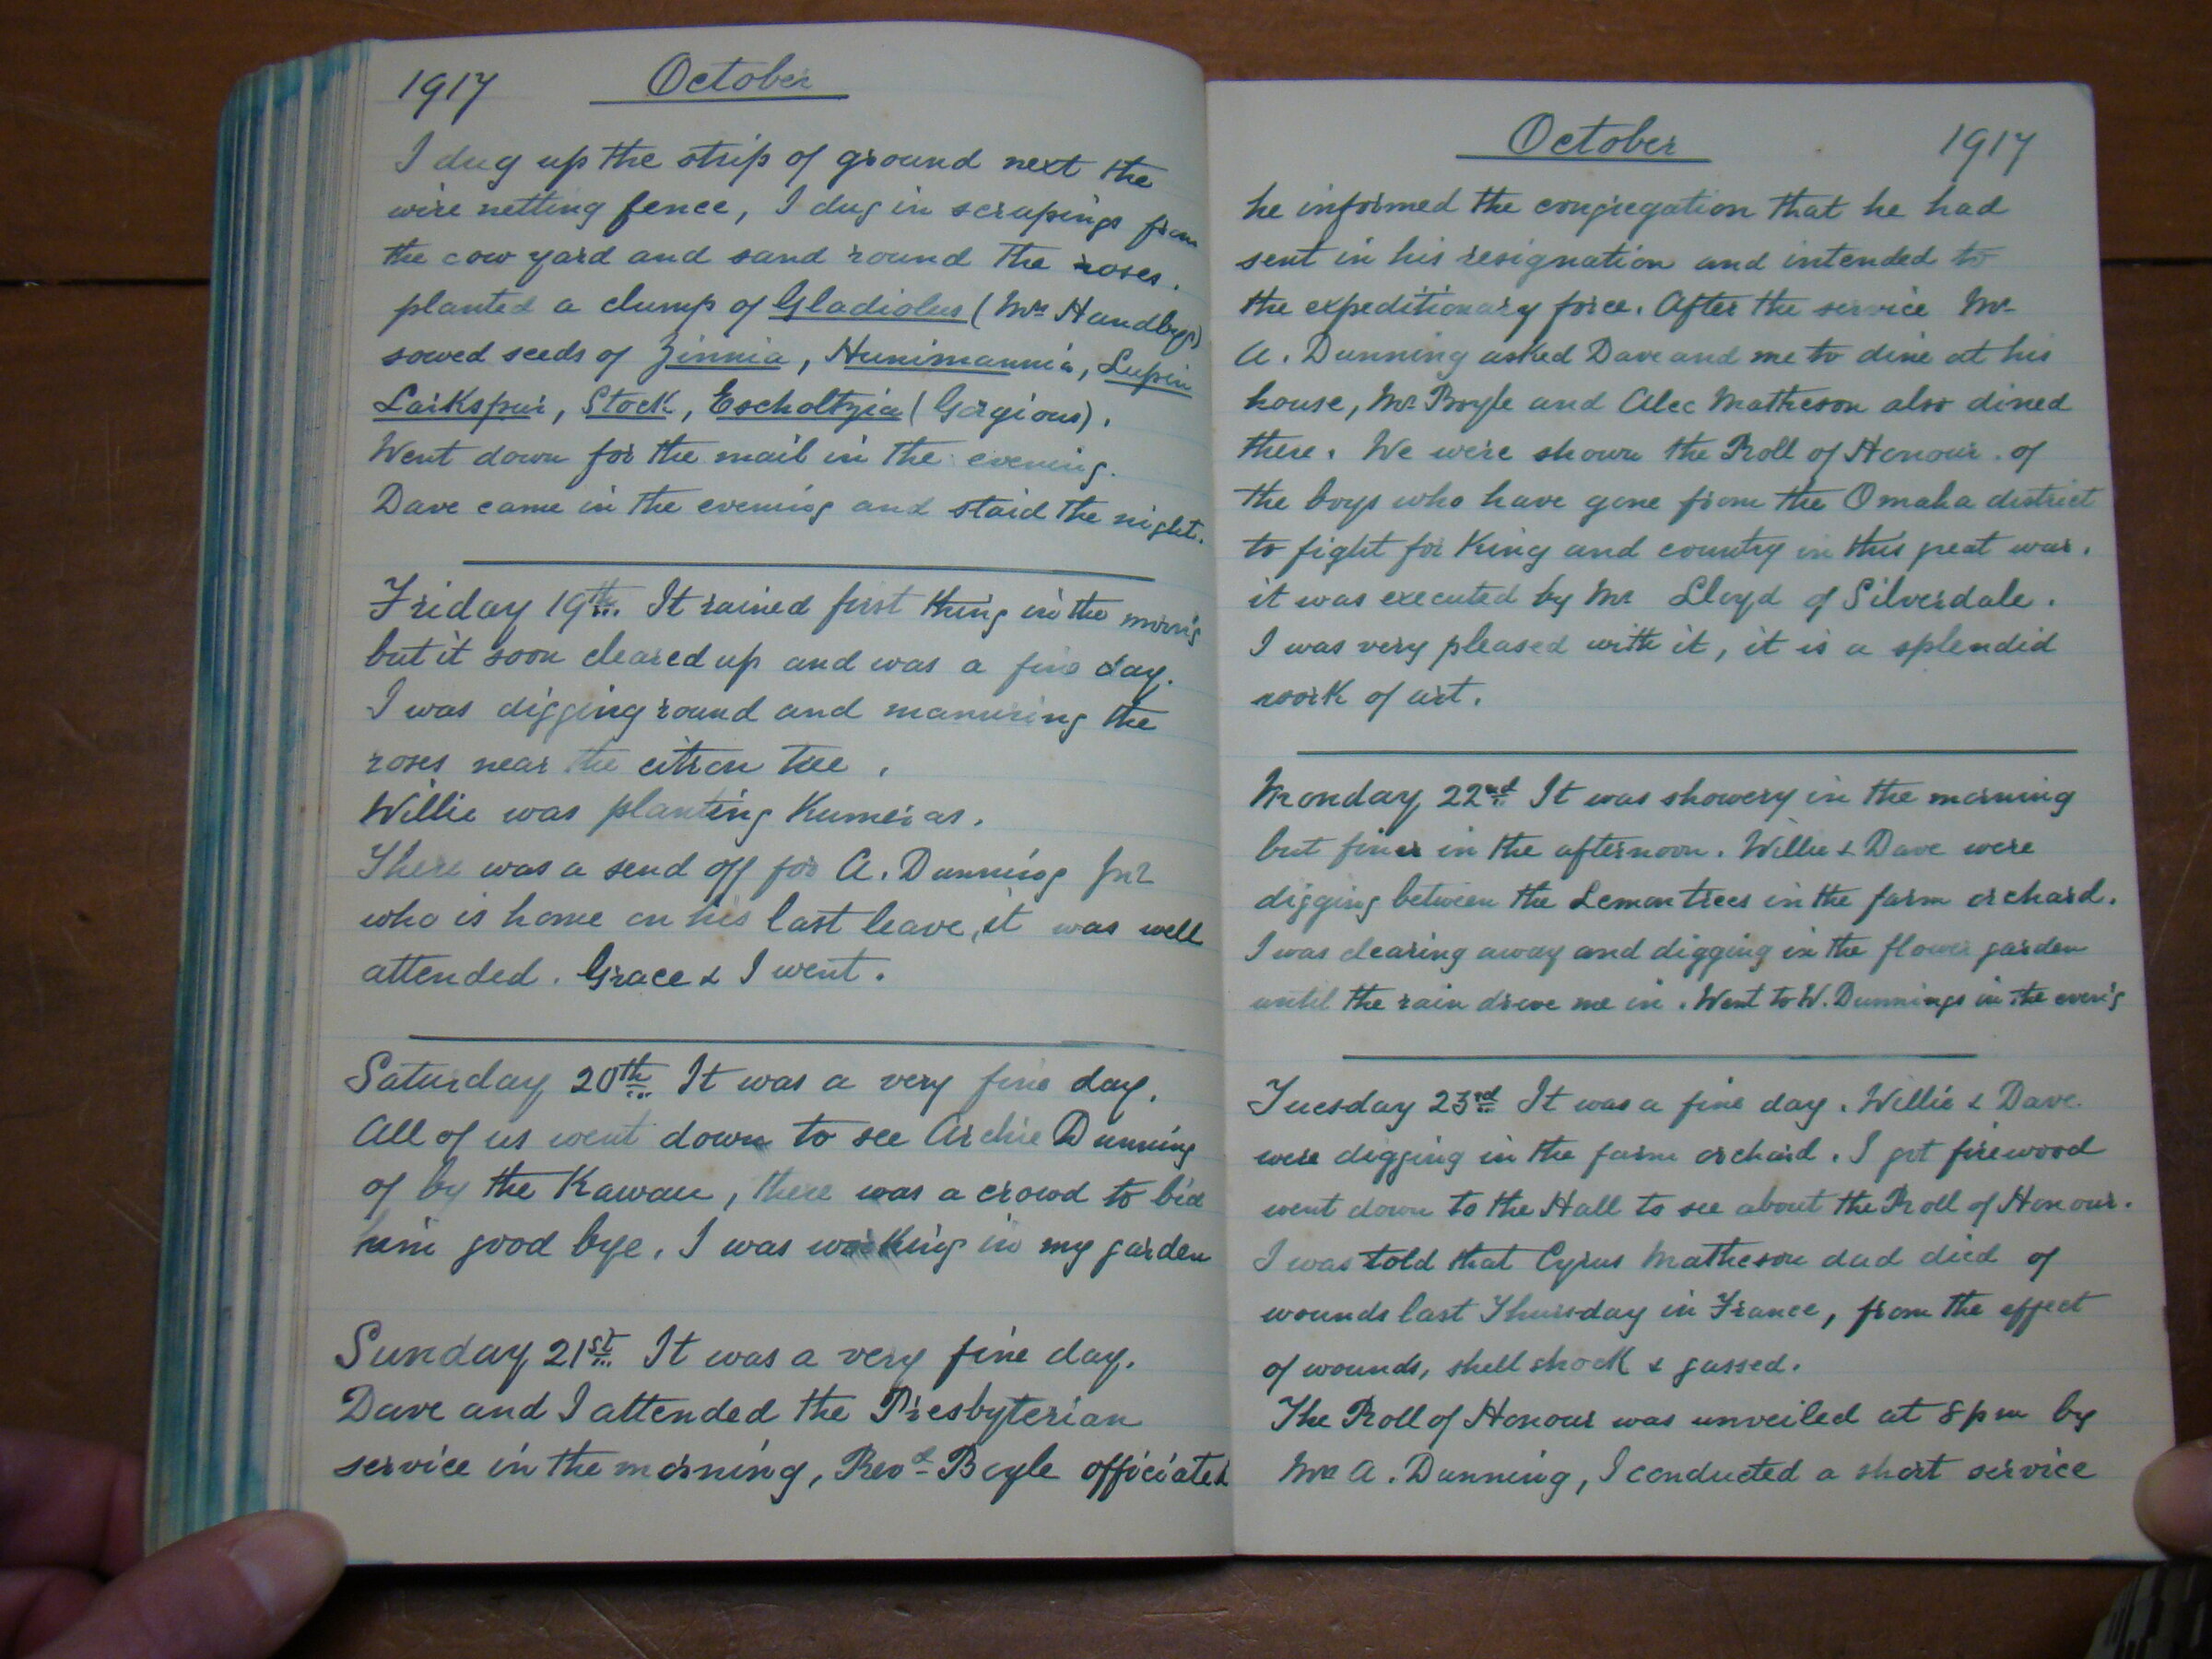 1917 October
I dug up the strip of ground next the
wire netting fence, I dug in scrapings from
the cow yard and sand round the roses.
planted a clump of Gladiolus (Mrs Handbys)
sowed seeds of Zinnia, Hunimannia, Lupin
Larkspur, Stock, Escholtzia (Gorgious).
Went down for the mail in the evening.
Dave came in the evening and staid the night.
Friday 19th It rained first thing in the morn'g
but it soon cleared up and was a fine day.
I was digging round and manuring the
roses near the citron tree.
Willie was planting Kumeras.
There was a send off for A. Dunning Jnr
who is home on his last leave, it was well
attended. Grace & I went.
Saturday 20th It was a very fine day.
All of us went down to see Archie Dunning
of by the Kawau, there was a crowd to bid
him good bye. I was working in my garden
Sunday 21st It was a very fine day.
Dave and I attended the Presbyterian
service in the morning, Revd Boyle officiated
October 1917
he informed the congregation that he had
sent in his resignation and intended to
the expeditionary force. After the service Mr
A. Dunning asked Dave and me to dine at his
house, Mr Boyle and Alec Matheson also dined
there. We were shown the Roll of Honour. of
the boys who have gone from the Omaha district
to fight for King and country in this great war.
it was executed by Mr Lloyd of Silverdale.
I was very pleased with it, it is a splendid
work of art.
Monday 22nd It was showery in the morning
but finer in the afternoon. Willie & Dave were
digging between the Lemon trees in the farm orchard.
I was clearing away and digging in the flower garden
until the rain drove me in. Went to W. Dunnings in the even'g
Tuesday 23rd It was a fine day. Willie & Dave
were digging in the farm orchard. I got firewood
went down to the Hall to see about the Roll of Honour.
I was told that Cyrus Matheson dad died of
wounds last Thursday in France, from the effect
of wounds, shell shock & gassed.
The Roll of Honour was unveiled at 8 pm by
Mrs A. Dunning, I conducted a short service